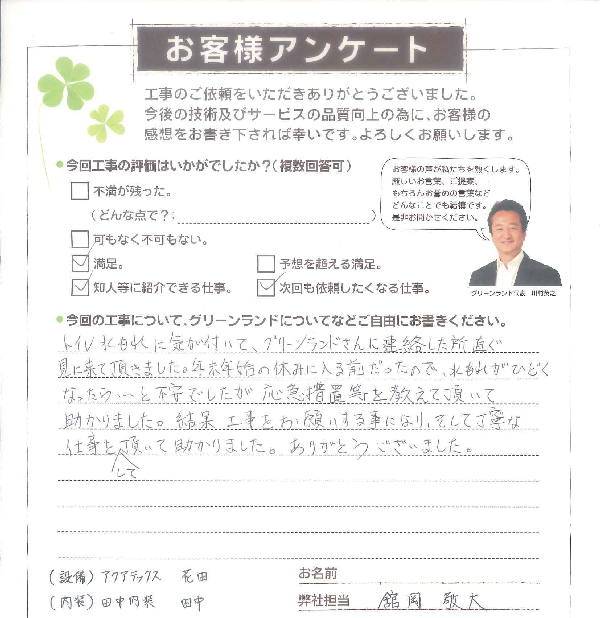 お客様アンケート
工事のご依頼をいただきありがとうございました。
今後の技術及びサービスの品質向上の為に、お客様の
感想をお書き下されば幸いです。よろしくお願いします。
●今回工事の評価はいかがでしたか?(複数回答可)
お客様の声が私たちを動くします。
厳しいお言葉、ご提案、
もちろんお誉めの言葉など
どんなことでも結構です。
是非お聞かせください。
不満が残った。
(どんな点で?: )
可もなく不可もない。
満足。
予想を超える満足。
知人等に紹介できる仕事。
次回も依頼したくなる仕事。
グリーンランド代表
●今回の工事について、グリーンランドについてなどご自由にお書きください。
トイレ水もれに気が付いて、グリーンランドさんに連絡した所直ぐ
見に来て頂きました。年末年始の休みに入る前だったので、水もれがひどく
なったら……と不安でしたが 応急措置等を教えて頂いて
助かりました。結果 工事をお願いする事になり、そして丁寧な
仕事を頂いて助かりました。ありがとうございました。
して
(設備)アクアテックス 花田
お名前
(内装)田中内装 田中
弊社担当 舘岡 敬大